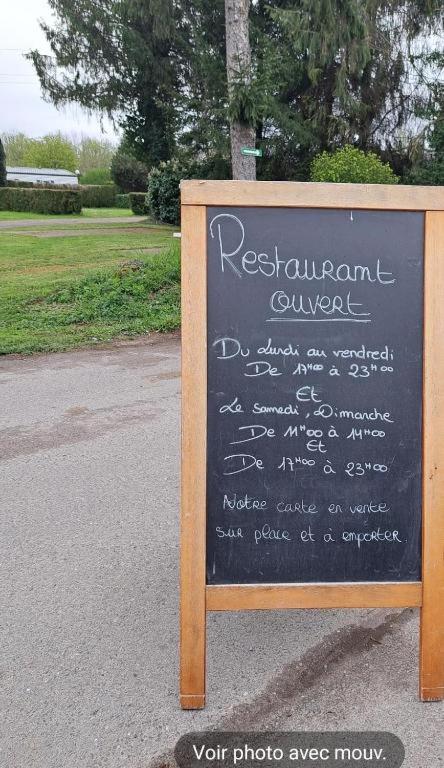 Restaurant
ouvert
Du Lundi au vendredi
De 17H00 à 23H00
Et
Le Samedi, Dimanche
De 11H00 à 14H00
Et
De 17H00 à 23H00
Notre carte en vente
sur place et à emporter.
Voir photo avec mouv.